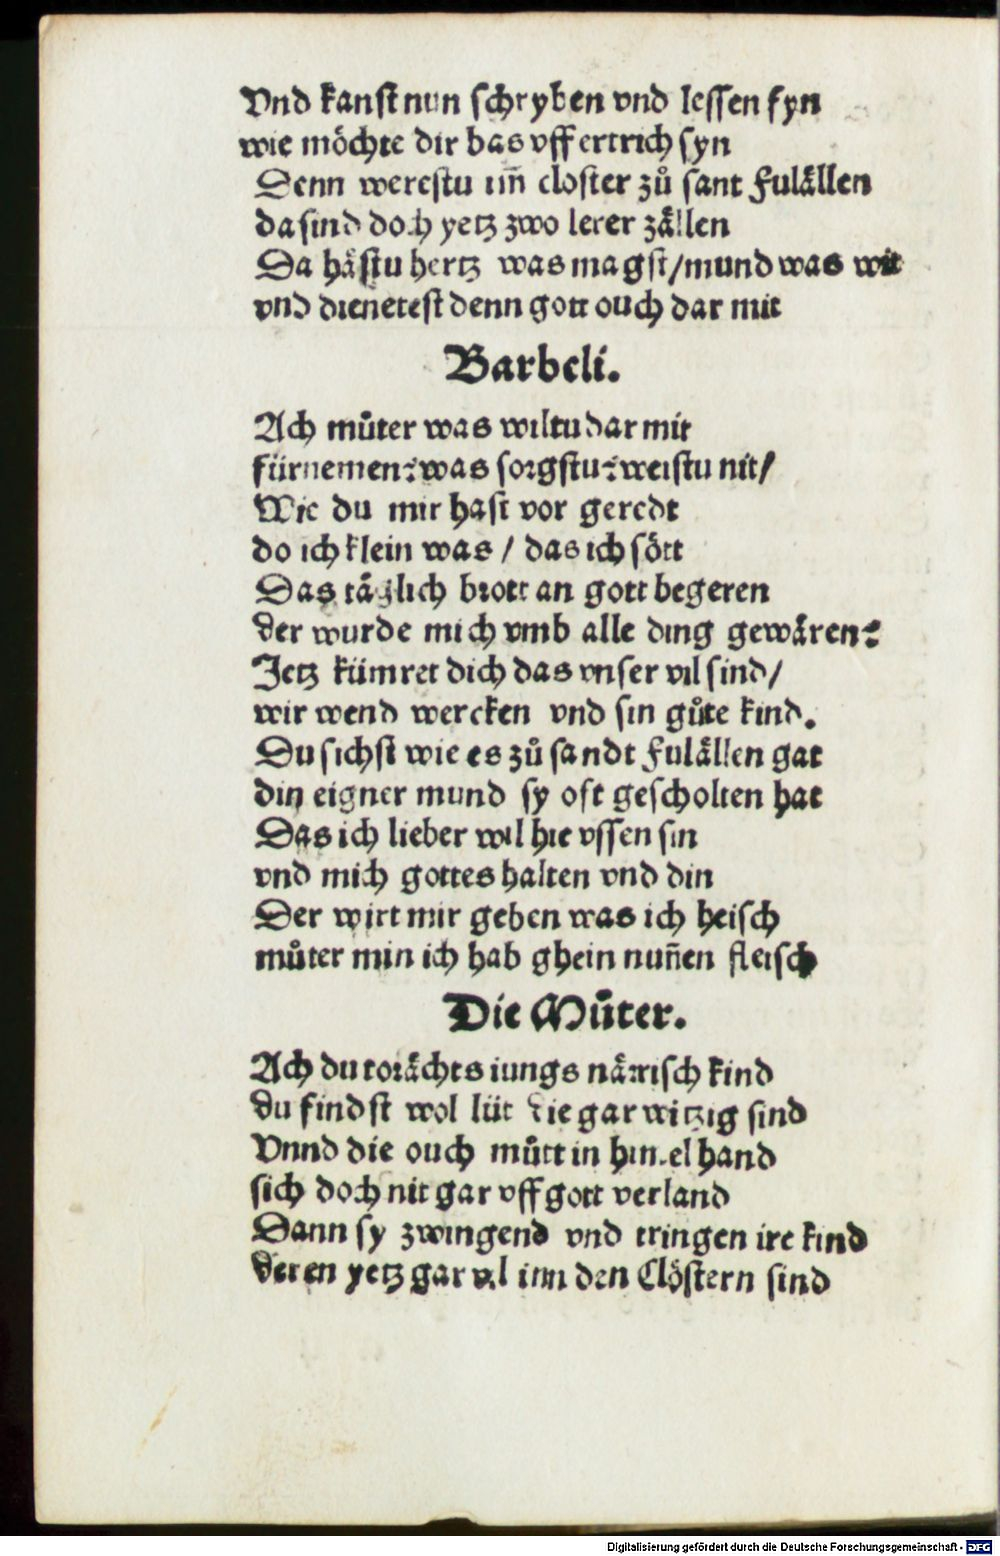 Vnd kanst nun schryben vnd lessen fyn
wie möchte dir bas vff ertrich syn
Denn werestu im̄ closter zů sant Fulållen
da sind doch yetz zwo lerer zållen
Da håstu hertz was magst/mund was wit
vnd dienetest denn gott ouch dar mit
Barbeli.
Ach můter was wiltu dar mit
fürnemen? was sorgstu? weistu nit/
Wie du mir hast vor geredt
do ich klein was / das ich sött
Das tåglich brott an gott begeren
der wurde mich vmb alle ding gewåren?
Jetz kümret dich das vnser vil sind/
wir wend wercken vnd sin gůte kind.
Du sichst wie es zů sandt Fulållen gat
din eigner mund sy oft gescholten hat
Das ich lieber wil hie vssen sin
vnd mich gottes halten vnd din
Der wirt mir geben was ich heisch
můter min ich hab ghein nun̄en fleisch
Die Můter.
Ach du toråchts iungs nårrisch kind
du findst wol lüt die gar witzig sind
Vnnd die ouch můtt in himel hand
sich doch nit gar vff gott verland
Dann sy zwingend vnd tringen ire kind
deren yetz gar vil inn den Clöstern sind
Digitalisierung gefördert durch die Deutsche Forschungsgemeinschaft - DFG